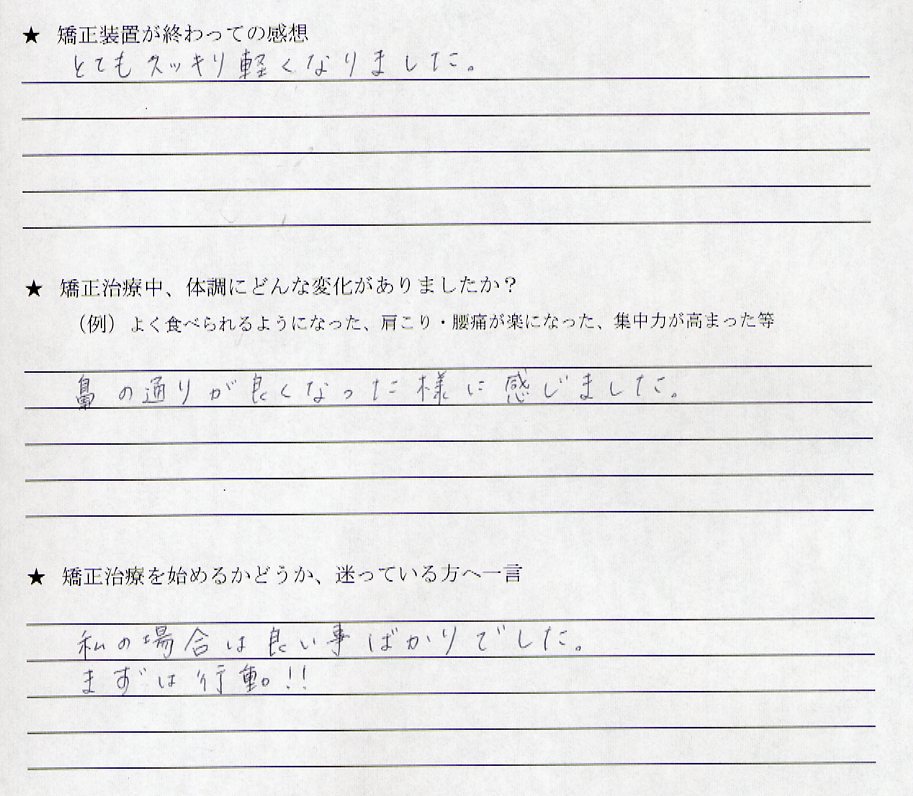 ★ 矯正装置が終わっての感想
とてもスッキリ軽くなりました。
★ 矯正治療中、体調にどんな変化がありましたか？
（例）よく食べられるようになった、肩こり・腰痛が楽になった、集中力が高まった等
鼻の通りが良くなった様に感じました。
★ 矯正治療を始めるかどうか、迷っている方へ一言
私の場合は良い事ばかりでした。
まずは行動。!!